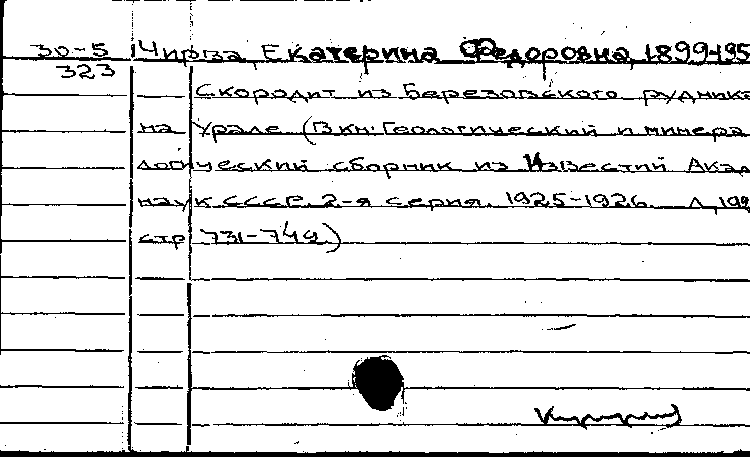 30-5 Чирва, Екатерина Федоровна, 1899-195
323
Скородит из Березовского рудника
на Урале (В кн: Геологический и минера
логический сборник из Известий Акад
наук СССР. 2-я серия. 1925-1926. Л, 192
стр 731-749.)